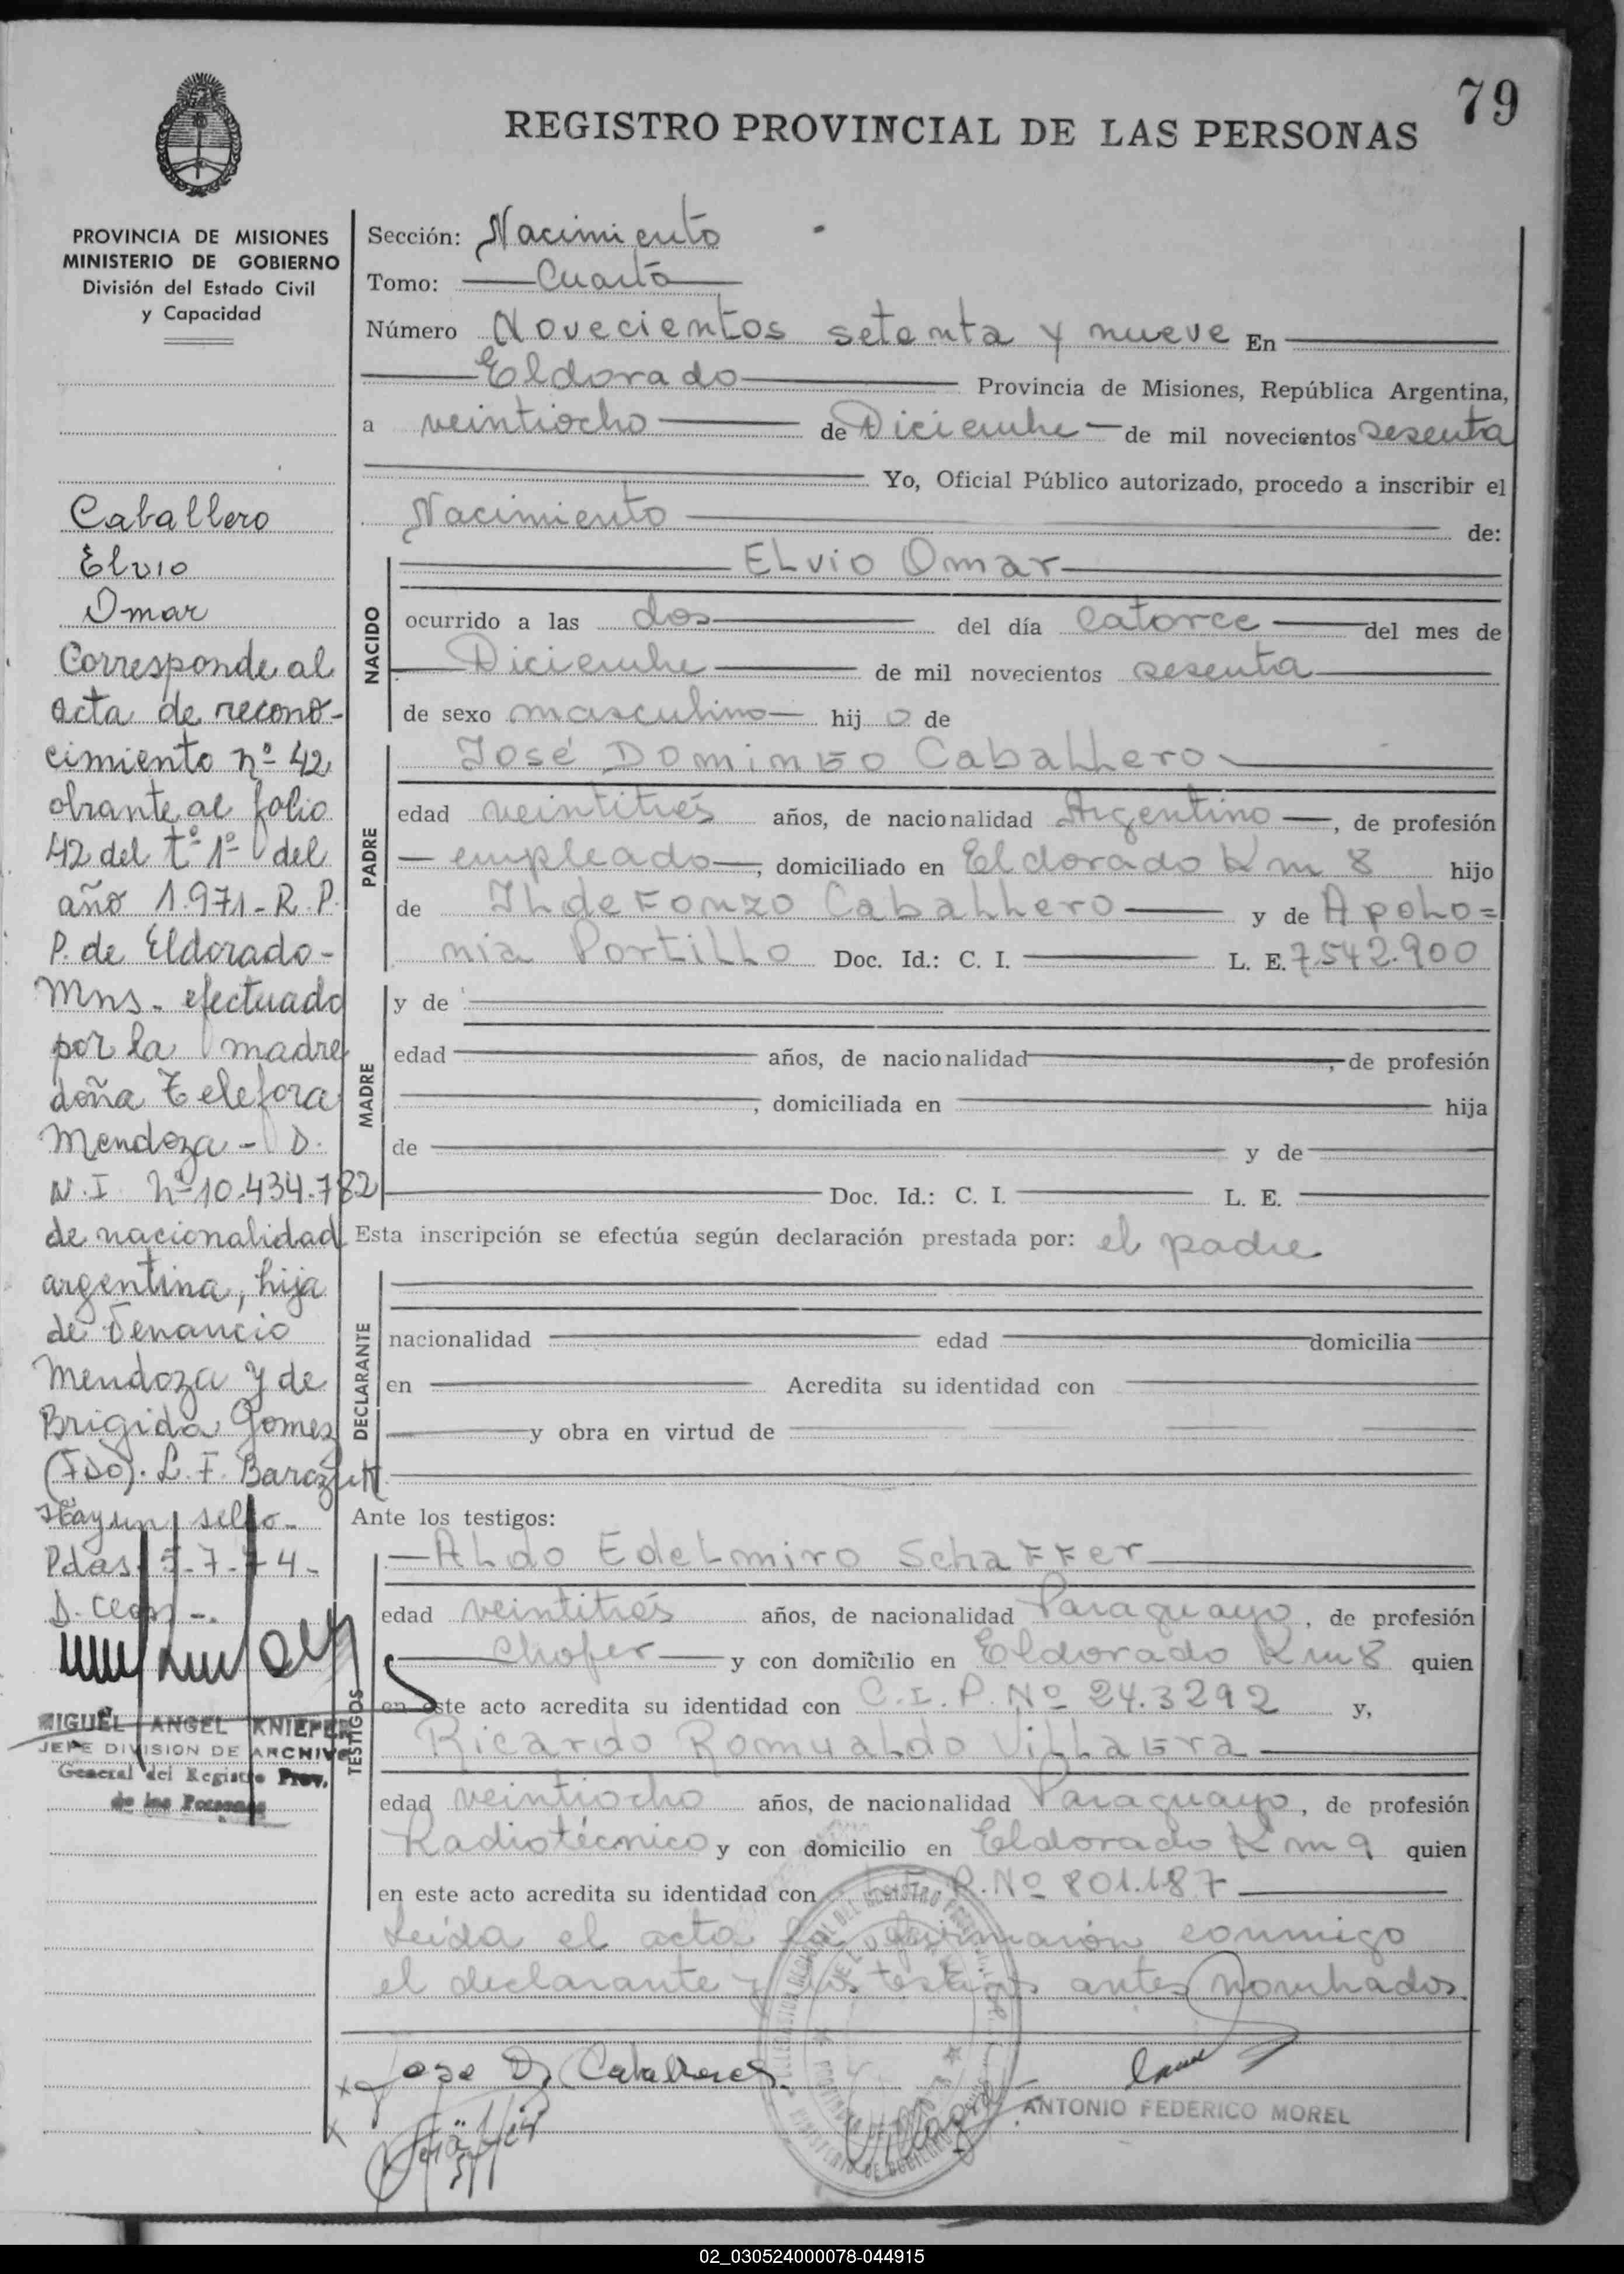 79
REGISTRO PROVINCIAL DE LAS PERSONAS
PROVINCIA DE MISIONES
MINISTERIO DE GOBIERNO
División del Estado Civil
y Capacidad
Caballero
Elvio
Omar
Corresponde al
acta de recono-
cimiento nº 42
obrante al folio
42 del tº 1º del
año 1.971 - R. P.
P. de Eldorado -
Mns. efectuado
por la madre
doña Telefora
Mendoza - D.
N. I. Nº 10.434.782
de nacionalidad
argentina, hija
de Venancio
Mendoza y de
Brigida Gomez
(Fdo). L. F.
Hay un sello -
Pdas 5-7-74-
MIGUEL ANGEL KNIEPER
JEFE DIVISION DE ARCHIVO
General del Registro Prov.
de las Personas
Sección: Nacimiento
Tomo: Cuarto
Número Novecientos setenta y nueve En
Eldorado Provincia de Misiones, República Argentina,
a veintiocho de Diciembre de mil novecientos sesenta
Yo, Oficial Público autorizado, procedo a inscribir el
Nacimiento de:
NACIDO
Elvio Omar
ocurrido a las dos del día catorce del mes de
Diciembre de mil novecientos sesenta
de sexo masculino hijo de
PADRE
José Domingo Caballero
edad veintitrés años, de nacionalidad Argentino, de profesión
empleado, domiciliado en Eldorado Km 8 hijo
de Ildefonzo Caballero y de Apolo=
nia Portillo Doc. Id.: C. I. L. E. 7.542.900
MADRE
y de
edad años, de nacionalidad, de profesión
, domiciliada en hija
de y de
Doc. Id.: C. I. L. E.
Esta inscripción se efectúa según declaración prestada por: el padre
DECLARANTE
nacionalidad edad domicilia
en Acredita su identidad con
y obra en virtud de
Ante los testigos:
TESTIGOS
Aldo Edelmiro Schaffer
edad veintitrés años, de nacionalidad Paraguayo, de profesión
Chofer y con domicilio en Eldorado Km 8 quien
en este acto acredita su identidad con C.I.P. Nº 24.3292 y,
Ricardo Romualdo Villagra
edad veintiocho años, de nacionalidad Paraguayo, de profesión
Radiotécnico y con domicilio en Eldorado Km 9 quien
en este acto acredita su identidad con P. Nº 801.187
Leida el acta la firmaron conmigo
el declarante y los testigos antes nombrados
Jose D. Caballero
Villagra
ANTONIO FEDERICO MOREL
02_030524000078-044915